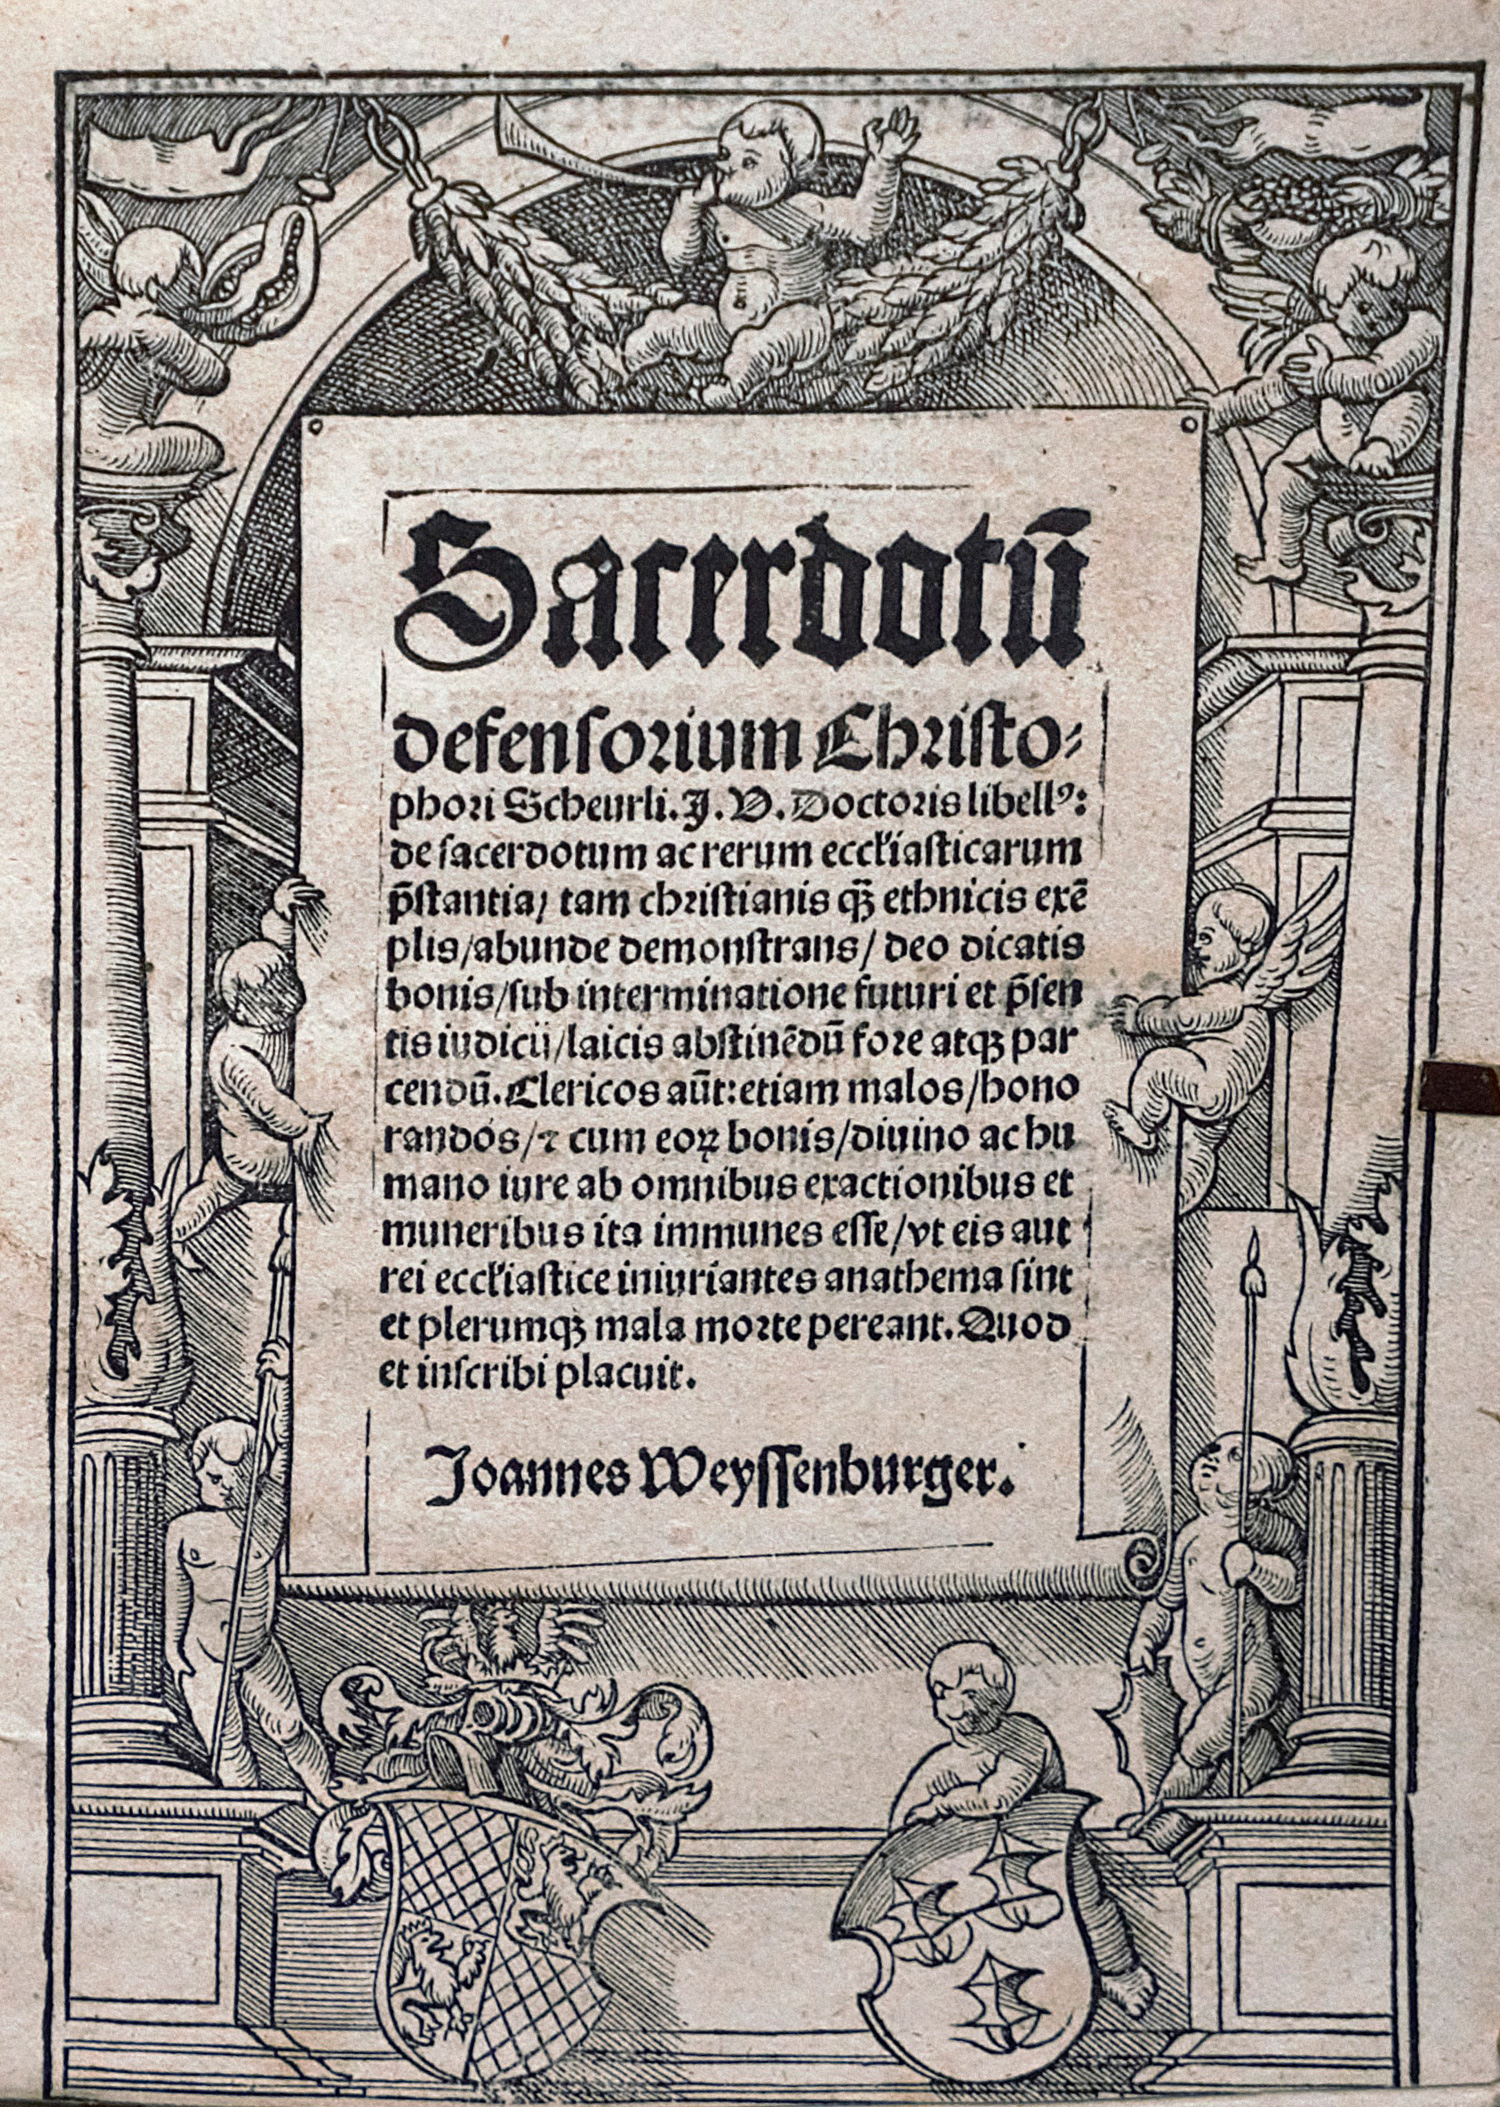 Sacerdotū
defensorium Christo⸗
phori Scheurli. J. V. Doctoris libellꝰ:
de sacerdotum ac rerum eccl̓iasticarum
p̄stantia/ tam christianis qꝫ̄ ethnicis exē
plis/abunde demonstrans/ deo dicatis
bonis/sub interminatione futuri et p̄sen
tis iudicij/laicis abstinēdū fore atqꝫ par
cendū. Clericos aūt: etiam malos/hono
randos/⁊ cum eoꝝ bonis/diuino ac hu
mano iure ab omnibus exactionibus et
muneribus ita immunes esse/vt eis aut
rei eccl̓iastice iniuriantes anathema sint
et plerumqꝫ mala morte pereant. Quod
et inscribi placuit.
Joannes Weyssenburger.